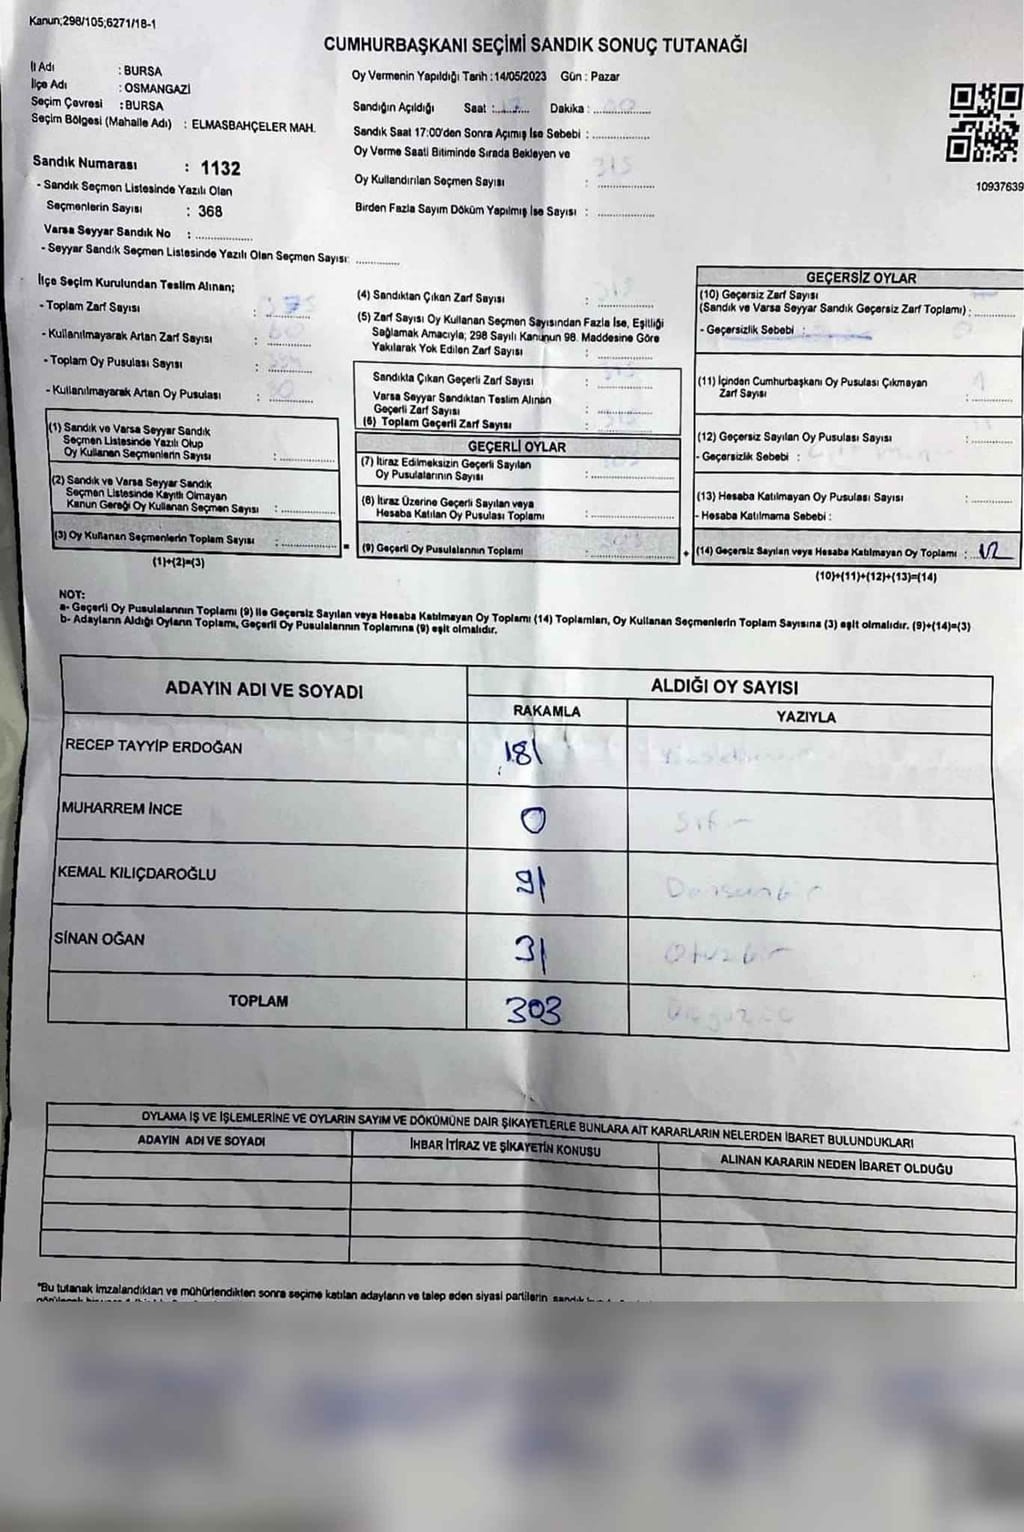 Kanun;298/105;6271/18-1
CUMHURBAŞKANI SEÇİMİ SANDIK SONUÇ TUTANAĞI
İl Adı : BURSA
İlçe Adı : OSMANGAZİ
Seçim Çevresi : BURSA
Seçim Bölgesi (Mahalle Adı) : ELMASBAHÇELER MAH.
Sandık Numarası : 1132
- Sandık Seçmen Listesinde Yazılı Olan
Seçmenlerin Sayısı : 368
Varsa Seyyar Sandık No : ..............
- Seyyar Sandık Seçmen Listesinde Yazılı Olan Seçmen Sayısı: ............
Oy Vermenin Yapıldığı Tarih :14/05/2023 Gün : Pazar
Sandığın Açıldığı Saat : Dakika :
Sandık Saat 17:00'den Sonra Açımış İse Sebebi : ..............
Oy Verme Saati Bitiminde Sırada Bekleyen ve
Oy Kullandırılan Seçmen Sayısı : 315
Birden Fazla Sayım Döküm Yapılmış İse Sayısı : ..............
10937639
İlçe Seçim Kurulundan Teslim Alınan;
- Toplam Zarf Sayısı :
- Kullanılmayarak Artan Zarf Sayısı :
- Toplam Oy Pusulası Sayısı :
- Kullanılmayarak Artan Oy Pusulası :
(1) Sandık ve Varsa Seyyar Sandık
Seçmen Listesinde Yazılı Olup
Oy Kullanan Seçmenlerin Sayısı : ..............
(2) Sandık ve Varsa Seyyar Sandık
Seçmen Listesinde Kayıtlı Olmayan
Kanun Gereği Oy Kullanan Seçmen Sayısı : ..............
(3) Oy Kullanan Seçmenlerin Toplam Sayısı : ..............
(1)+(2)=(3)
(4) Sandıktan Çıkan Zarf Sayısı : 315
(5) Zarf Sayısı Oy Kullanan Seçmen Sayısından Fazla İse, Eşitliği
Sağlamak Amacıyla; 298 Sayılı Kanunun 98. Maddesine Göre
Yakılarak Yok Edilen Zarf Sayısı : ..............
Sandıkta Çıkan Geçerli Zarf Sayısı : 315
Varsa Seyyar Sandıktan Teslim Alınan
Geçerli Zarf Sayısı : ..............
(6) Toplam Geçerli Zarf Sayısı : 315
GEÇERLİ OYLAR
(7) İtiraz Edilmeksizin Geçerli Sayılan
Oy Pusulalarının Sayısı : 303
(8) İtiraz Üzerine Geçerli Sayılan veya
Hesaba Katılan Oy Pusulası Toplamı : ..............
(9) Geçerli Oy Pusulalarının Toplamı : 303
GEÇERSİZ OYLAR
(10) Geçersiz Zarf Sayısı
(Sandık ve Varsa Seyyar Sandık Geçersiz Zarf Toplamı) : ..........
- Geçersizlik Sebebi :
(11) İçinden Cumhurbaşkanı Oy Pusulası Çıkmayan
Zarf Sayısı : 1
(12) Geçersiz Sayılan Oy Pusulası Sayısı :
- Geçersizlik Sebebi :
(13) Hesaba Katılmayan Oy Pusulası Sayısı : ..........
- Hesaba Katılmama Sebebi :
(14) Geçersiz Sayılan veya Hesaba Katılmayan Oy Toplamı : 12
(10)+(11)+(12)+(13)=(14)
NOT:
a- Geçerli Oy Pusulalarının Toplamı (9) ile Geçersiz Sayılan veya Hesaba Katılmayan Oy Toplamı (14) Toplamları, Oy Kullanan Seçmenlerin Toplam Sayısına (3) eşit olmalıdır. (9)+(14)=(3)
b- Adayların Aldığı Oyların Toplamı, Geçerli Oy Pusulalarının Toplamına (9) eşit olmalıdır.
ADAYIN ADI VE SOYADI ALDIĞI OY SAYISI
RAKAMLA YAZIYLA
RECEP TAYYİP ERDOĞAN 181
MUHARREM İNCE 0 Sıfır
KEMAL KILIÇDAROĞLU 91 Doksanbir
SİNAN OĞAN 31 Otuzbir
TOPLAM 303 Üçyüzüç
OYLAMA İŞ VE İŞLEMLERİNE VE OYLARIN SAYIM VE DÖKÜMÜNE DAİR ŞİKAYETLERLE BUNLARA AİT KARARLARIN NELERDEN İBARET BULUNDUKLARI
ADAYIN ADI VE SOYADI İHBAR İTİRAZ VE ŞİKAYETİN KONUSU ALINAN KARARIN NEDEN İBARET OLDUĞU
*Bu tutanak imzalandıktan ve mühürlendikten sonra seçime katılan adayların ve talep eden siyasi partilerin